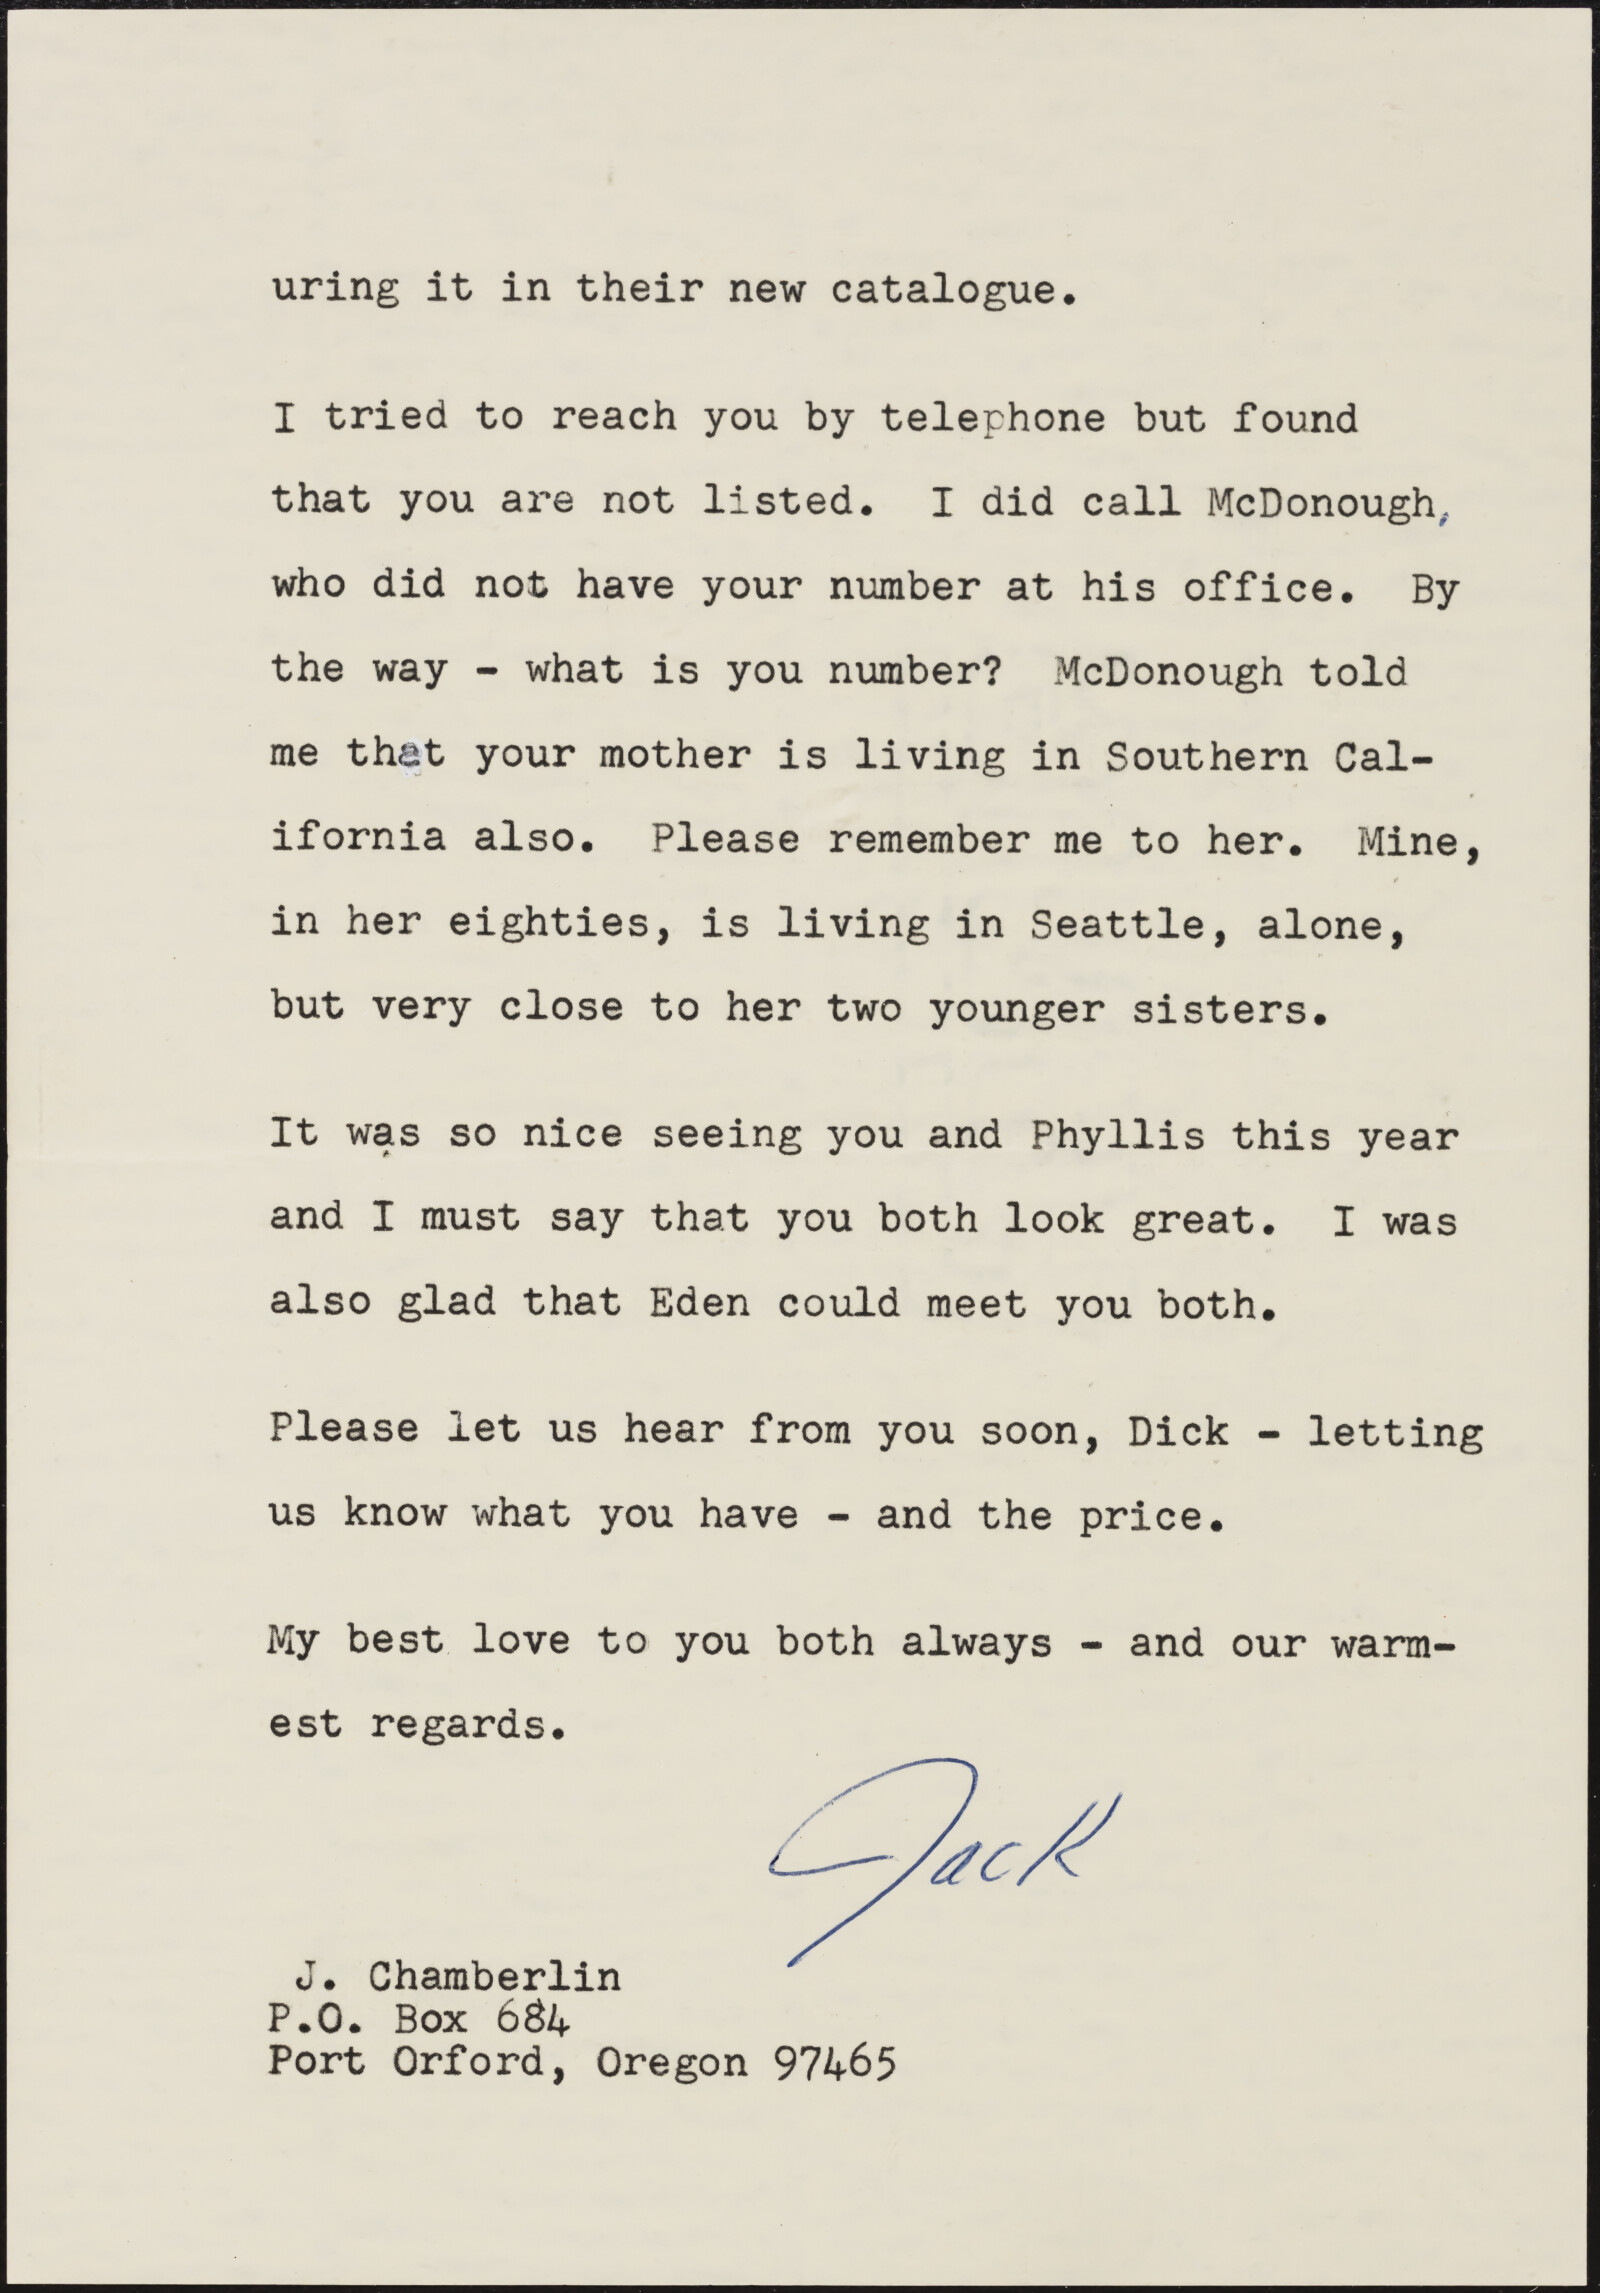 uring it in their new catalogue.
I tried to reach you by telephone but found
that you are not listed.  I did call McDonough,
who did not have your number at his office.  By
the way - what is you number?  McDonough told
me that your mother is living in Southern Cal-
ifornia also.  Please remember me to her.  Mine,
in her eighties, is living in Seattle, alone,
but very close to her two younger sisters.
It was so nice seeing you and Phyllis this year
and I must say that you both look great.  I was
also glad that Eden could meet you both.
Please let us hear from you soon, Dick - letting
us know what you have - and the price.
My best love to you both always - and our warm-
est regards.
Jack
J. Chamberlin
P.O. Box 684
Port Orford, Oregon 97465